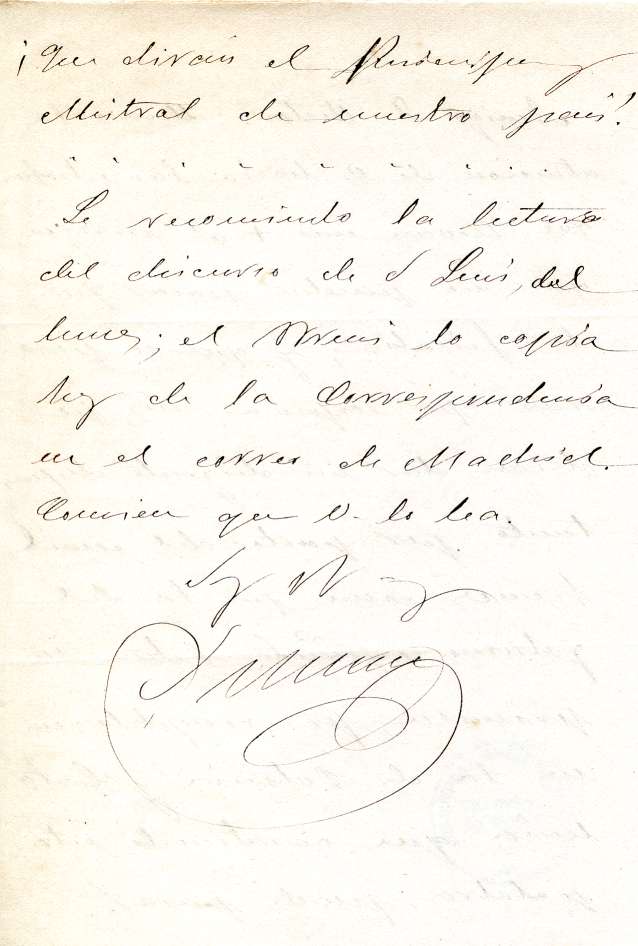 ¡Que dirán el y
Mistral de nuestro pais!
Le recomiendo la lectura
del discurso de d Luis, del
lunes; el lo copia
hoy de la Correspondencia
en el correo de Madrid.
Conviene que V. lo lea.